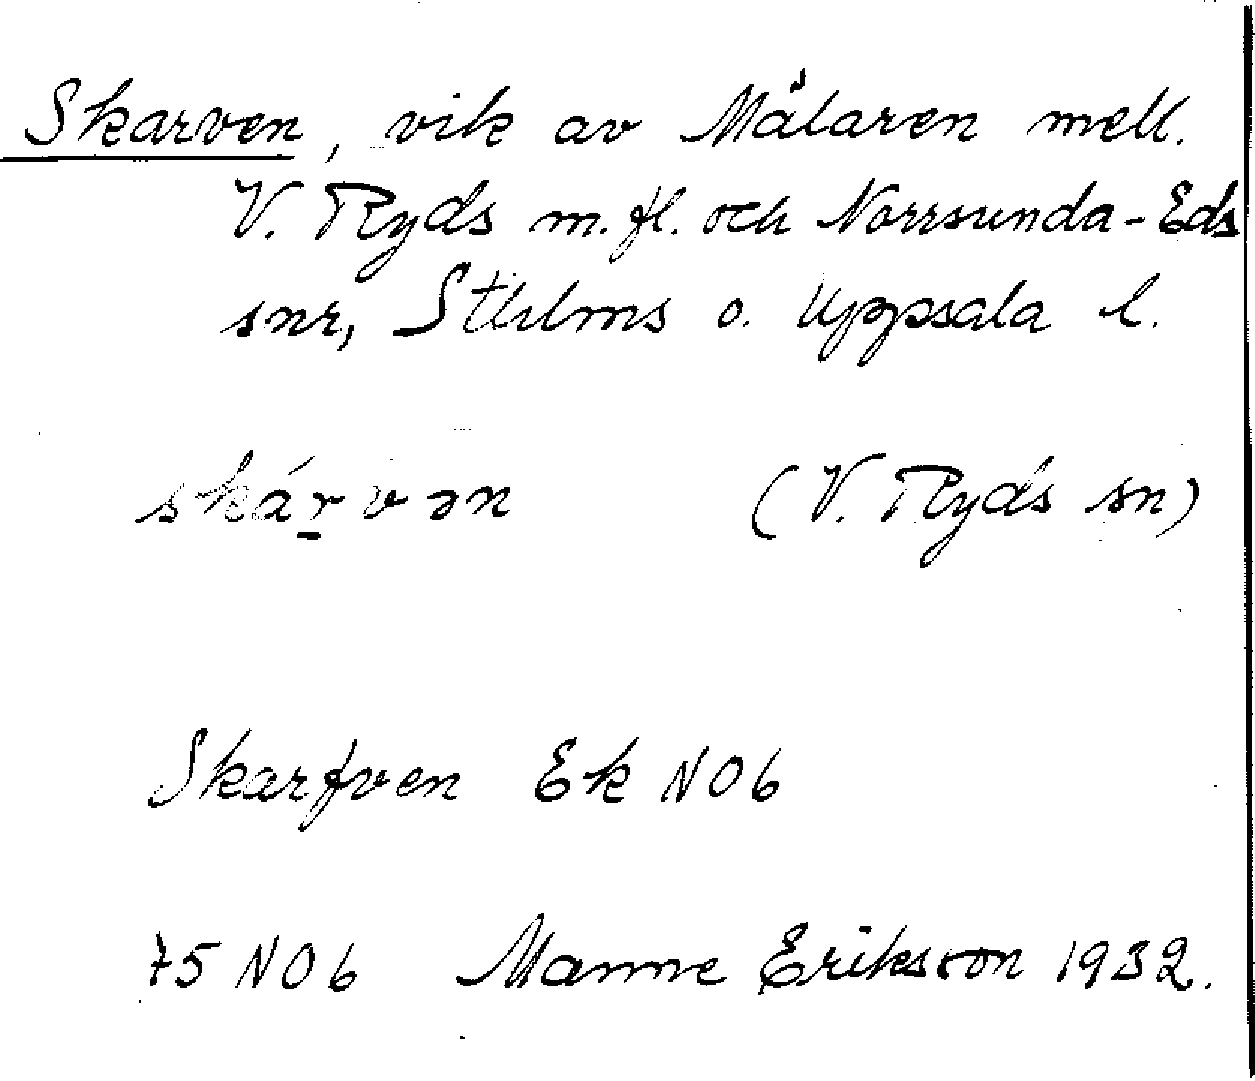 Skarven, vik av Mälaren mell.
V. Ryds m.fl. och Norrsunda-Eds
snr, Sthlms o. Uppsala l.
skárvən (V. Ryds sn)
Skarfven Ek NO6
75 NO6 Manne Eriksson 1932.